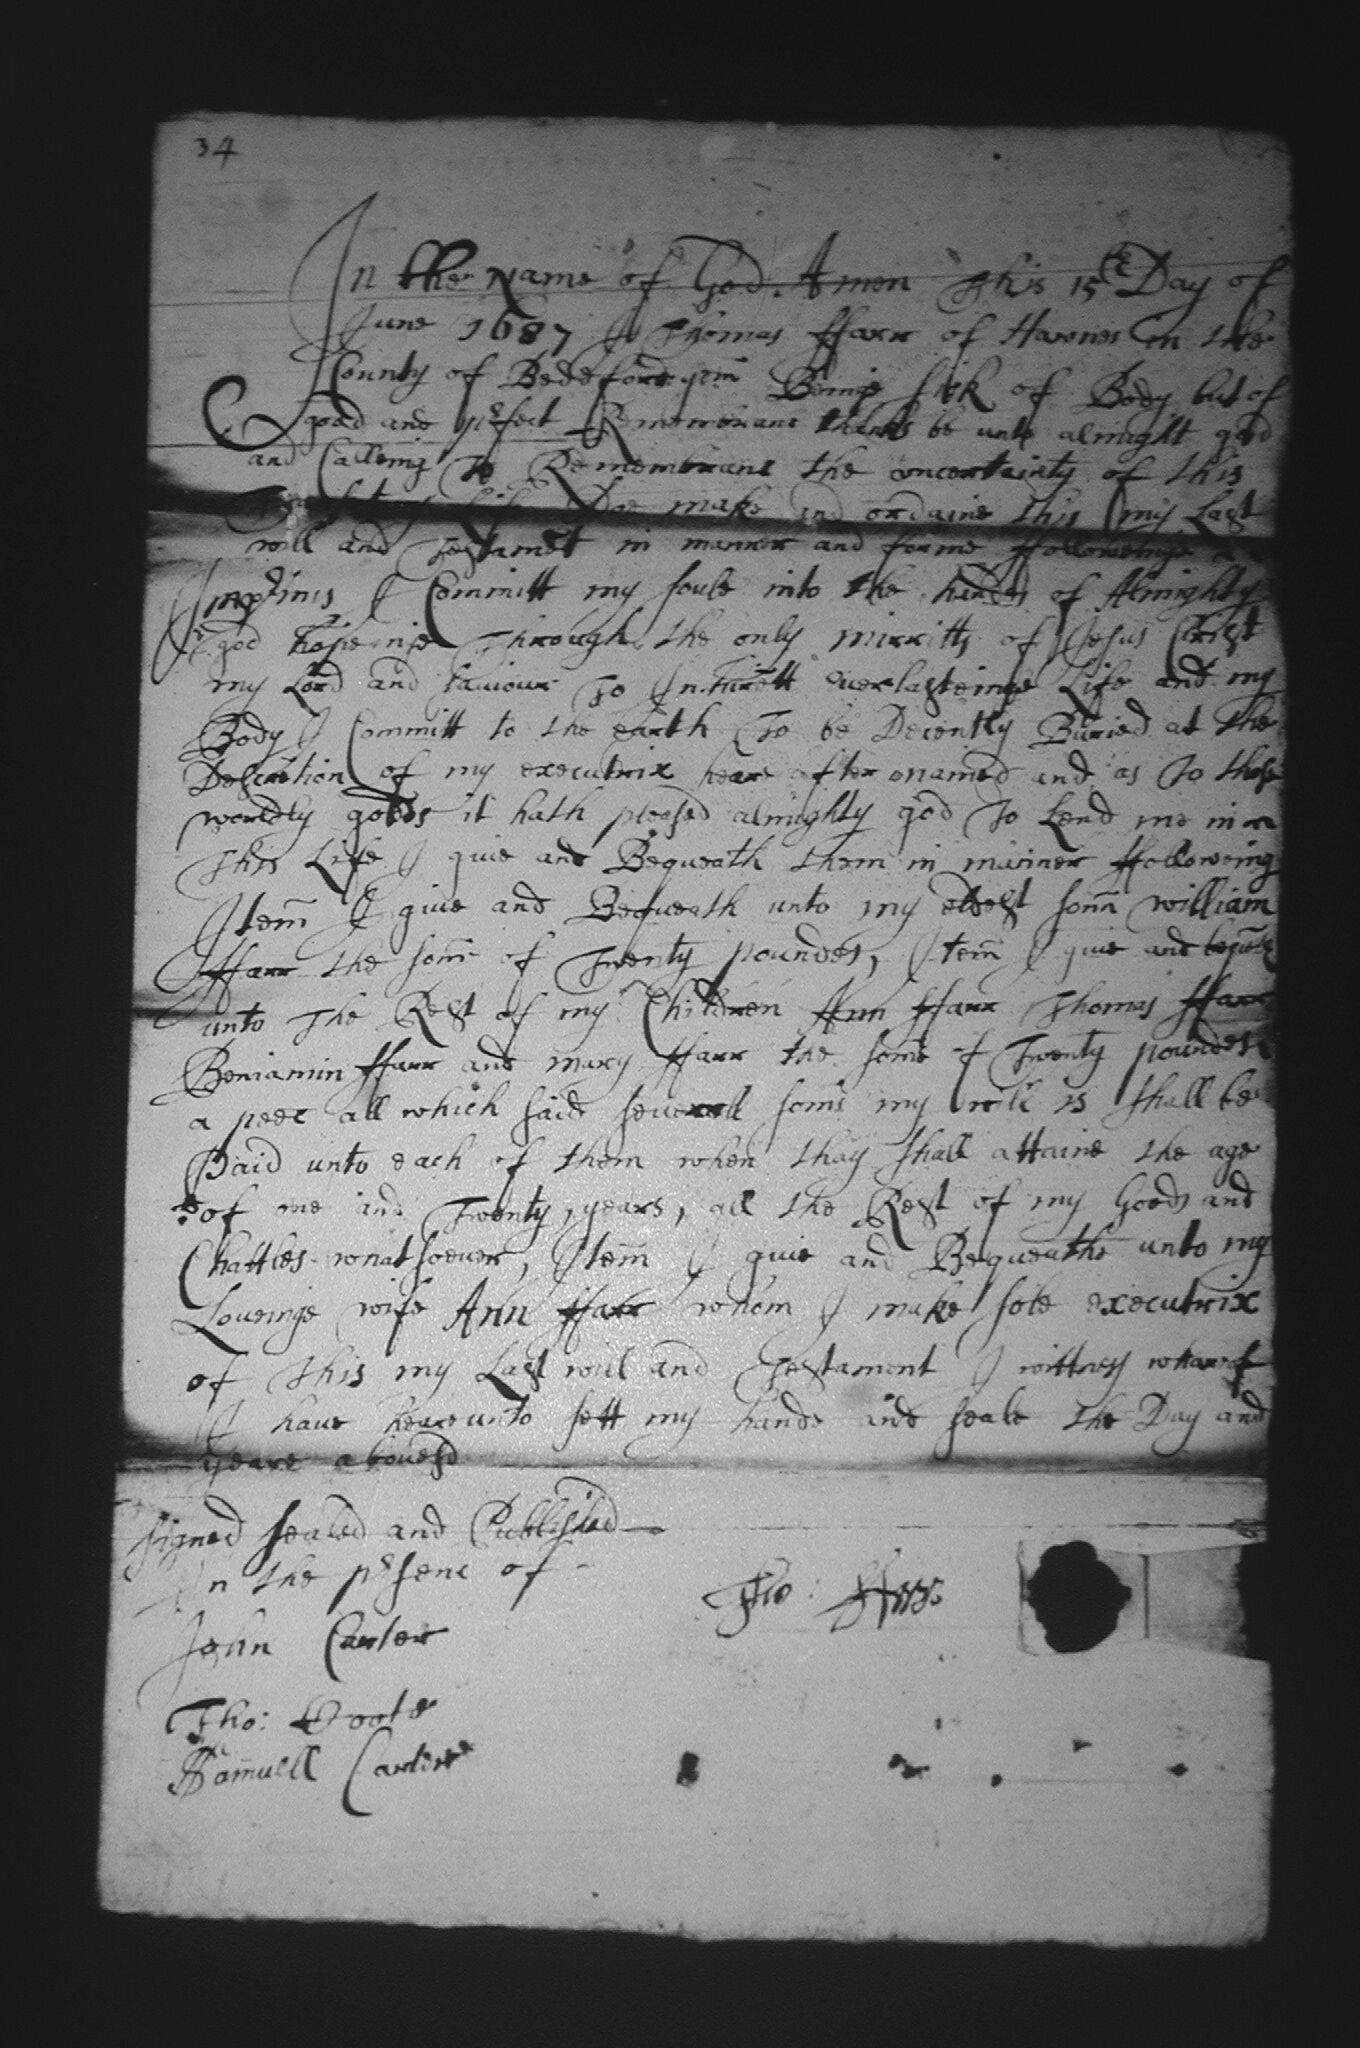 34
In the Name of God Amen This 15th Day of
June 1687 I Thomas ffarr of Hawnes in the
County of Bedeford Beinge sick of Body but of
good and prfect Rememberanc thanks be unto almight god
and Calleing To Remembranc the uncertainty of this
Transitory Life Doe make and ordaine this my Last
will and Testamet in manner and forme ffolloweinge
Imprinis I Committ my soule into the hands of Almighty
god hopeinge Through the only mirritts of Jesus Christ
my Lord and saviour To Inhirett everlasteinge Life and my
Body I Committ to the earth To be Decently Buried at the
Descretion of my executrix heare after named and as To those
worldly goods it hath pleased almighty god To Lend me in
This Life I give and Bequeath them in manner ffolloweing
Item I give and Bequeath unto my eldest sonn william
ffarr the som of Twenty poundes, Item I give and
unto The Rest of my Children Ann ffarr Thomas ffarr
Beniamin ffarr and mary ffarr the some of Twenty poundes
a peec all which said severall soms my will is shall be
Paid unto each of them when thay shall attaine the age
of one and Twenty years, all the Rest of my Goods and
Chattles whatsoever, Item I give and Bequeathe unto my
Loveinge wife Ann ffarr whom I make sole executrix
of this my Last will and Testament I wittness wharof
I have heareunto sett my hande and seale the Day and
yeare abovesd
signed sealed and Published
In the prsenc of
Tho: ffarr
John Carter
Tho: Coote
Samuell Carter